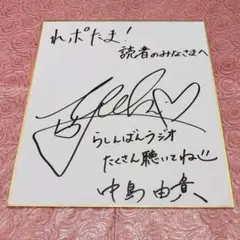 れポたま!
読者のみなさまへ
らしんばんラジオ
たくさん聴いてね!!
中島 由貴